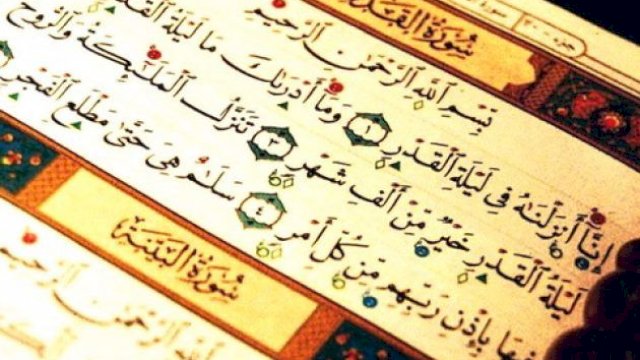 سُورَةُ القَدْرِ
بِسْمِ ٱللَّهِ ٱلرَّحْمَٰنِ ٱلرَّحِيمِ
إِنَّآ أَنزَلْنَٰهُ فِى لَيْلَةِ ٱلْقَدْرِ ١ وَمَآ أَدْرَىٰكَ مَا لَيْلَةُ ٱلْقَدْرِ
لَيْلَةُ ٱلْقَدْرِ خَيْرٌ مِّنْ أَلْفِ شَهْرٍ ٣ تَنَزَّلُ ٱلْمَلَٰٓئِكَةُ وَٱلرُّوحُ
فِيهَا بِإِذْنِ رَبِّهِم مِّن كُلِّ أَمْرٍ ٤ سَلَٰمٌ هِىَ حَتَّىٰ مَطْلَعِ ٱلْفَجْرِ
سُورَةُ البَيِّنَةِ
ٱللَّهِ ٱلرَّحْمَٰنِ ٱلرَّحِيمِ